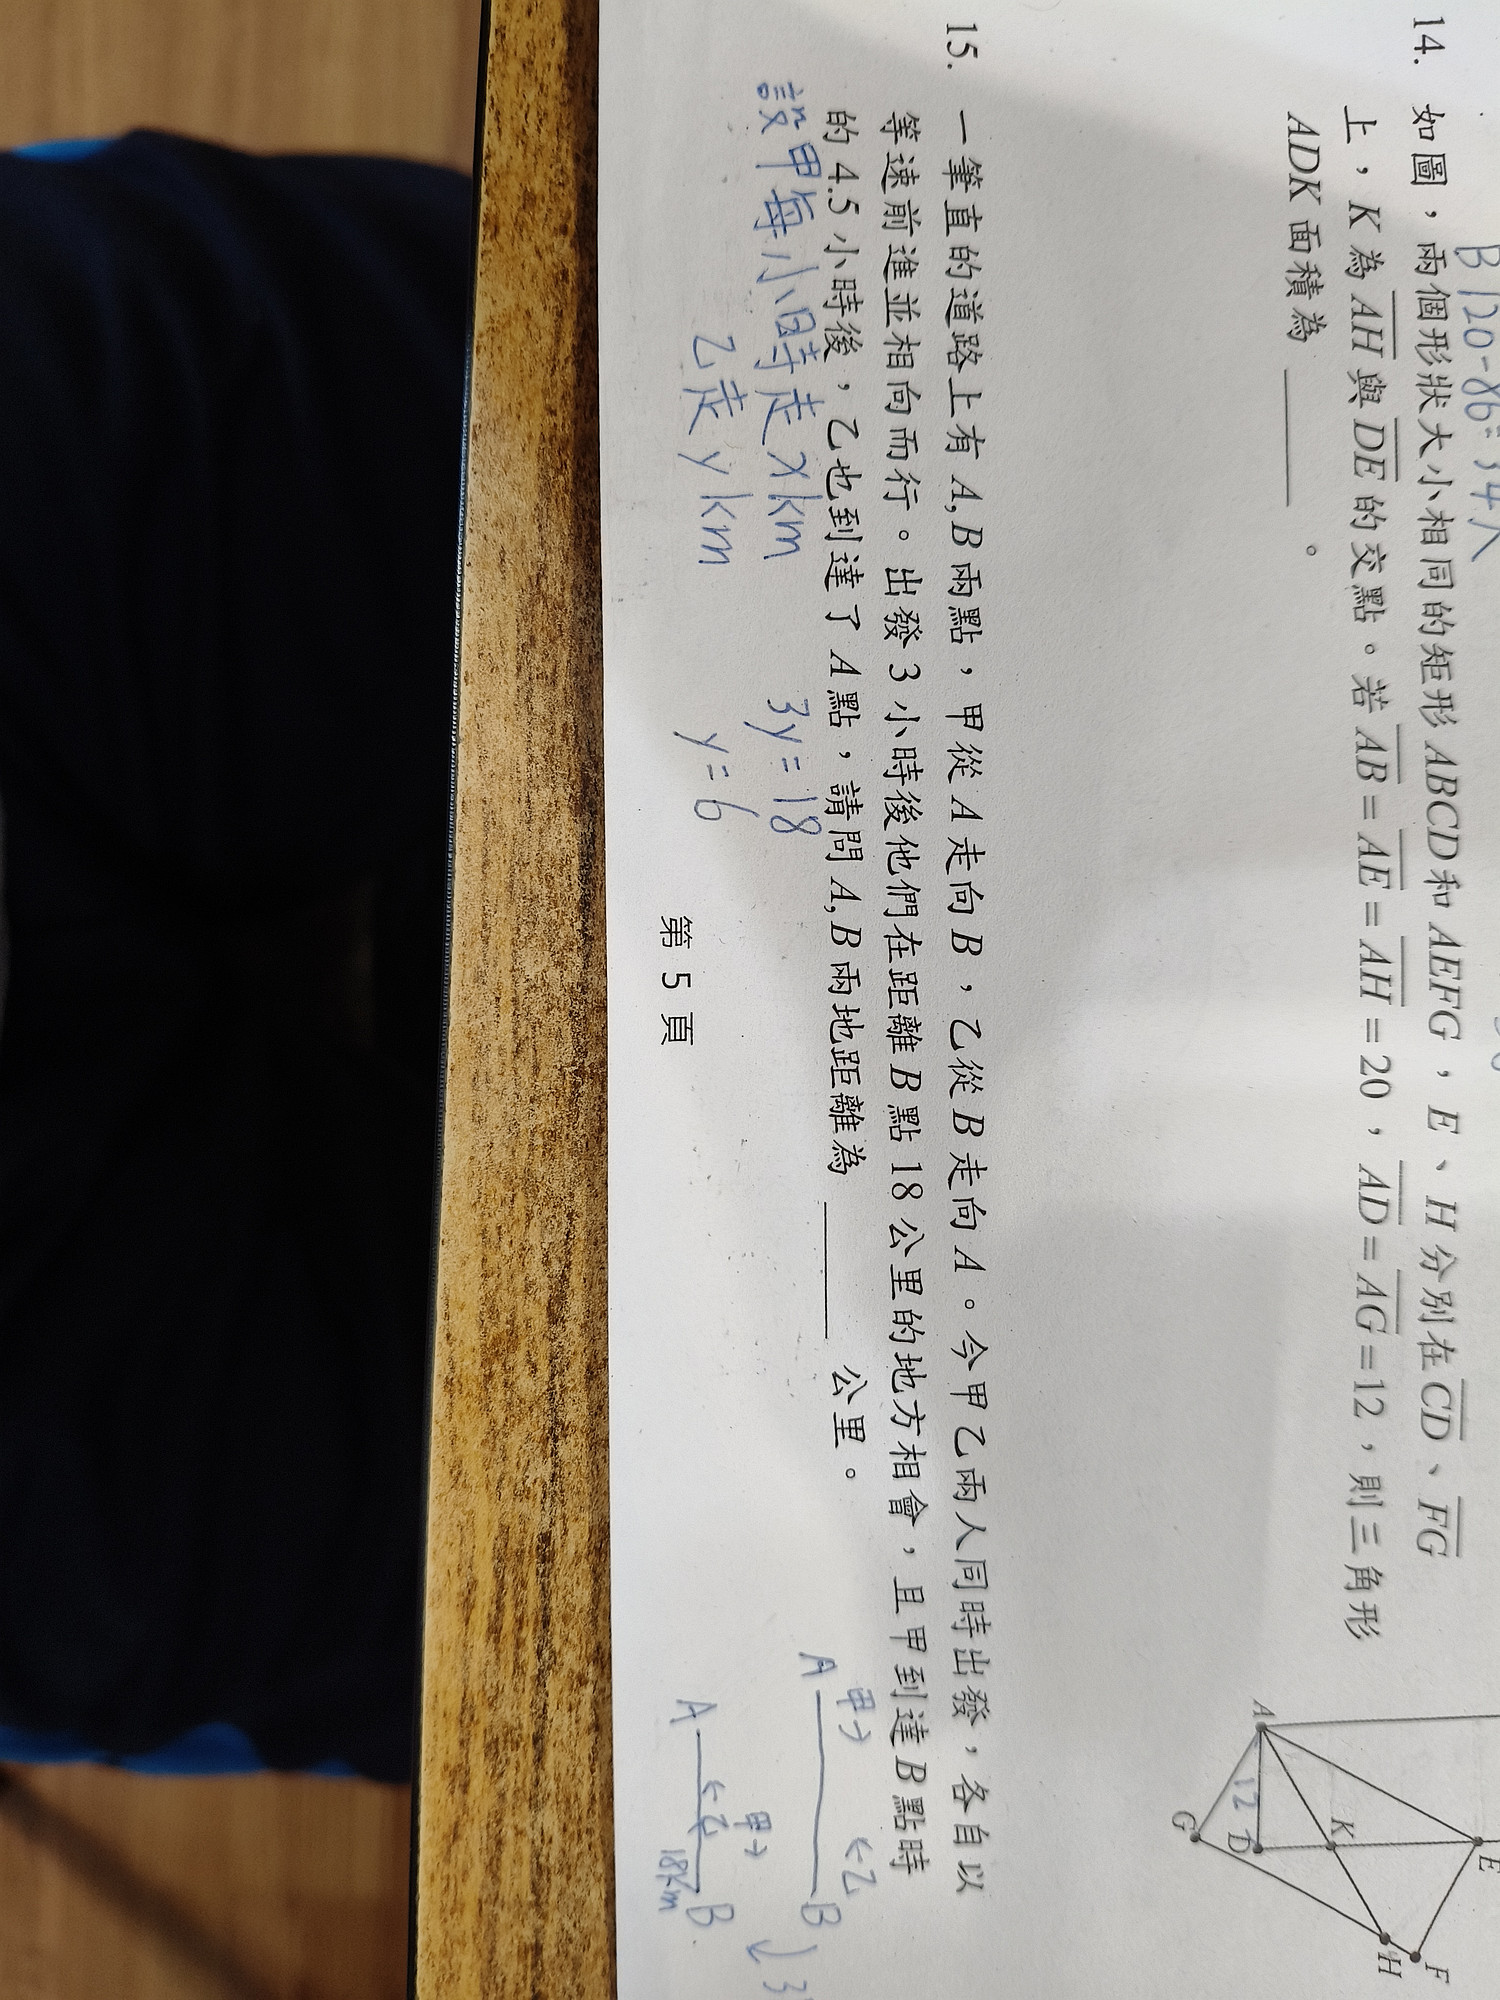 B 120-86=34人
14. 如圖，兩個形狀大小相同的矩形 ABCD和 AEFG，E、H 分別在 CD、FG
上，K 為 AH 與 DE 的交點。若 AB = AE = AH =20，AD = AG =12，則三角形
ADK 面積為 ______ 。
A
G
12
D
K
E
H
F
15. 一筆直的道路上有 A, B 兩點，甲從 A 走向 B，乙從 B 走向 A。今甲乙兩人同時出發，各自以
等速前進並相向而行。出發 3 小時後他們在距離 B 點 18 公里的地方相會，且甲到達 B 點時
的 4.5 小時後，乙也到達了 A 點，請問 A, B 兩地距離為 ______ 公里。
設甲每小時走 x km
乙走 y km
3y=18
y=6
甲→ ←乙
A B
甲→
A ←乙 B
18km
第 5 頁